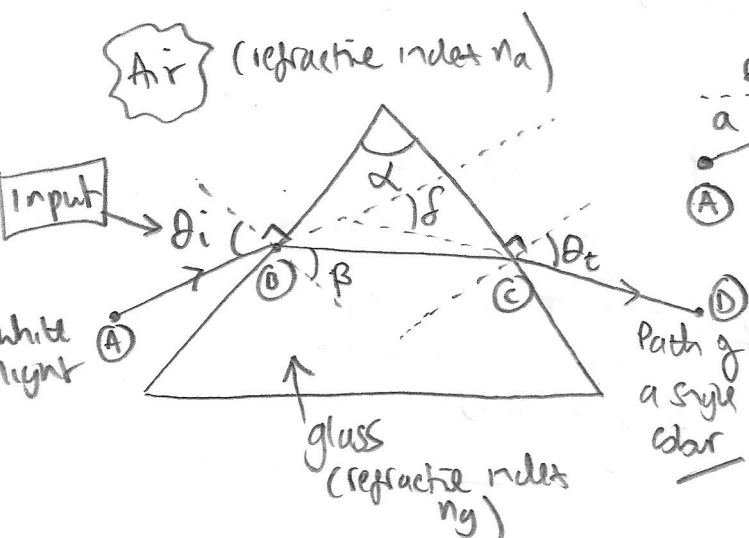 Air (refractive index na)
a
A
input
α
δ
θi
θt
B
β
C
D
white
light
A
Path of
a single
colour
glass
(refractive index
ng)